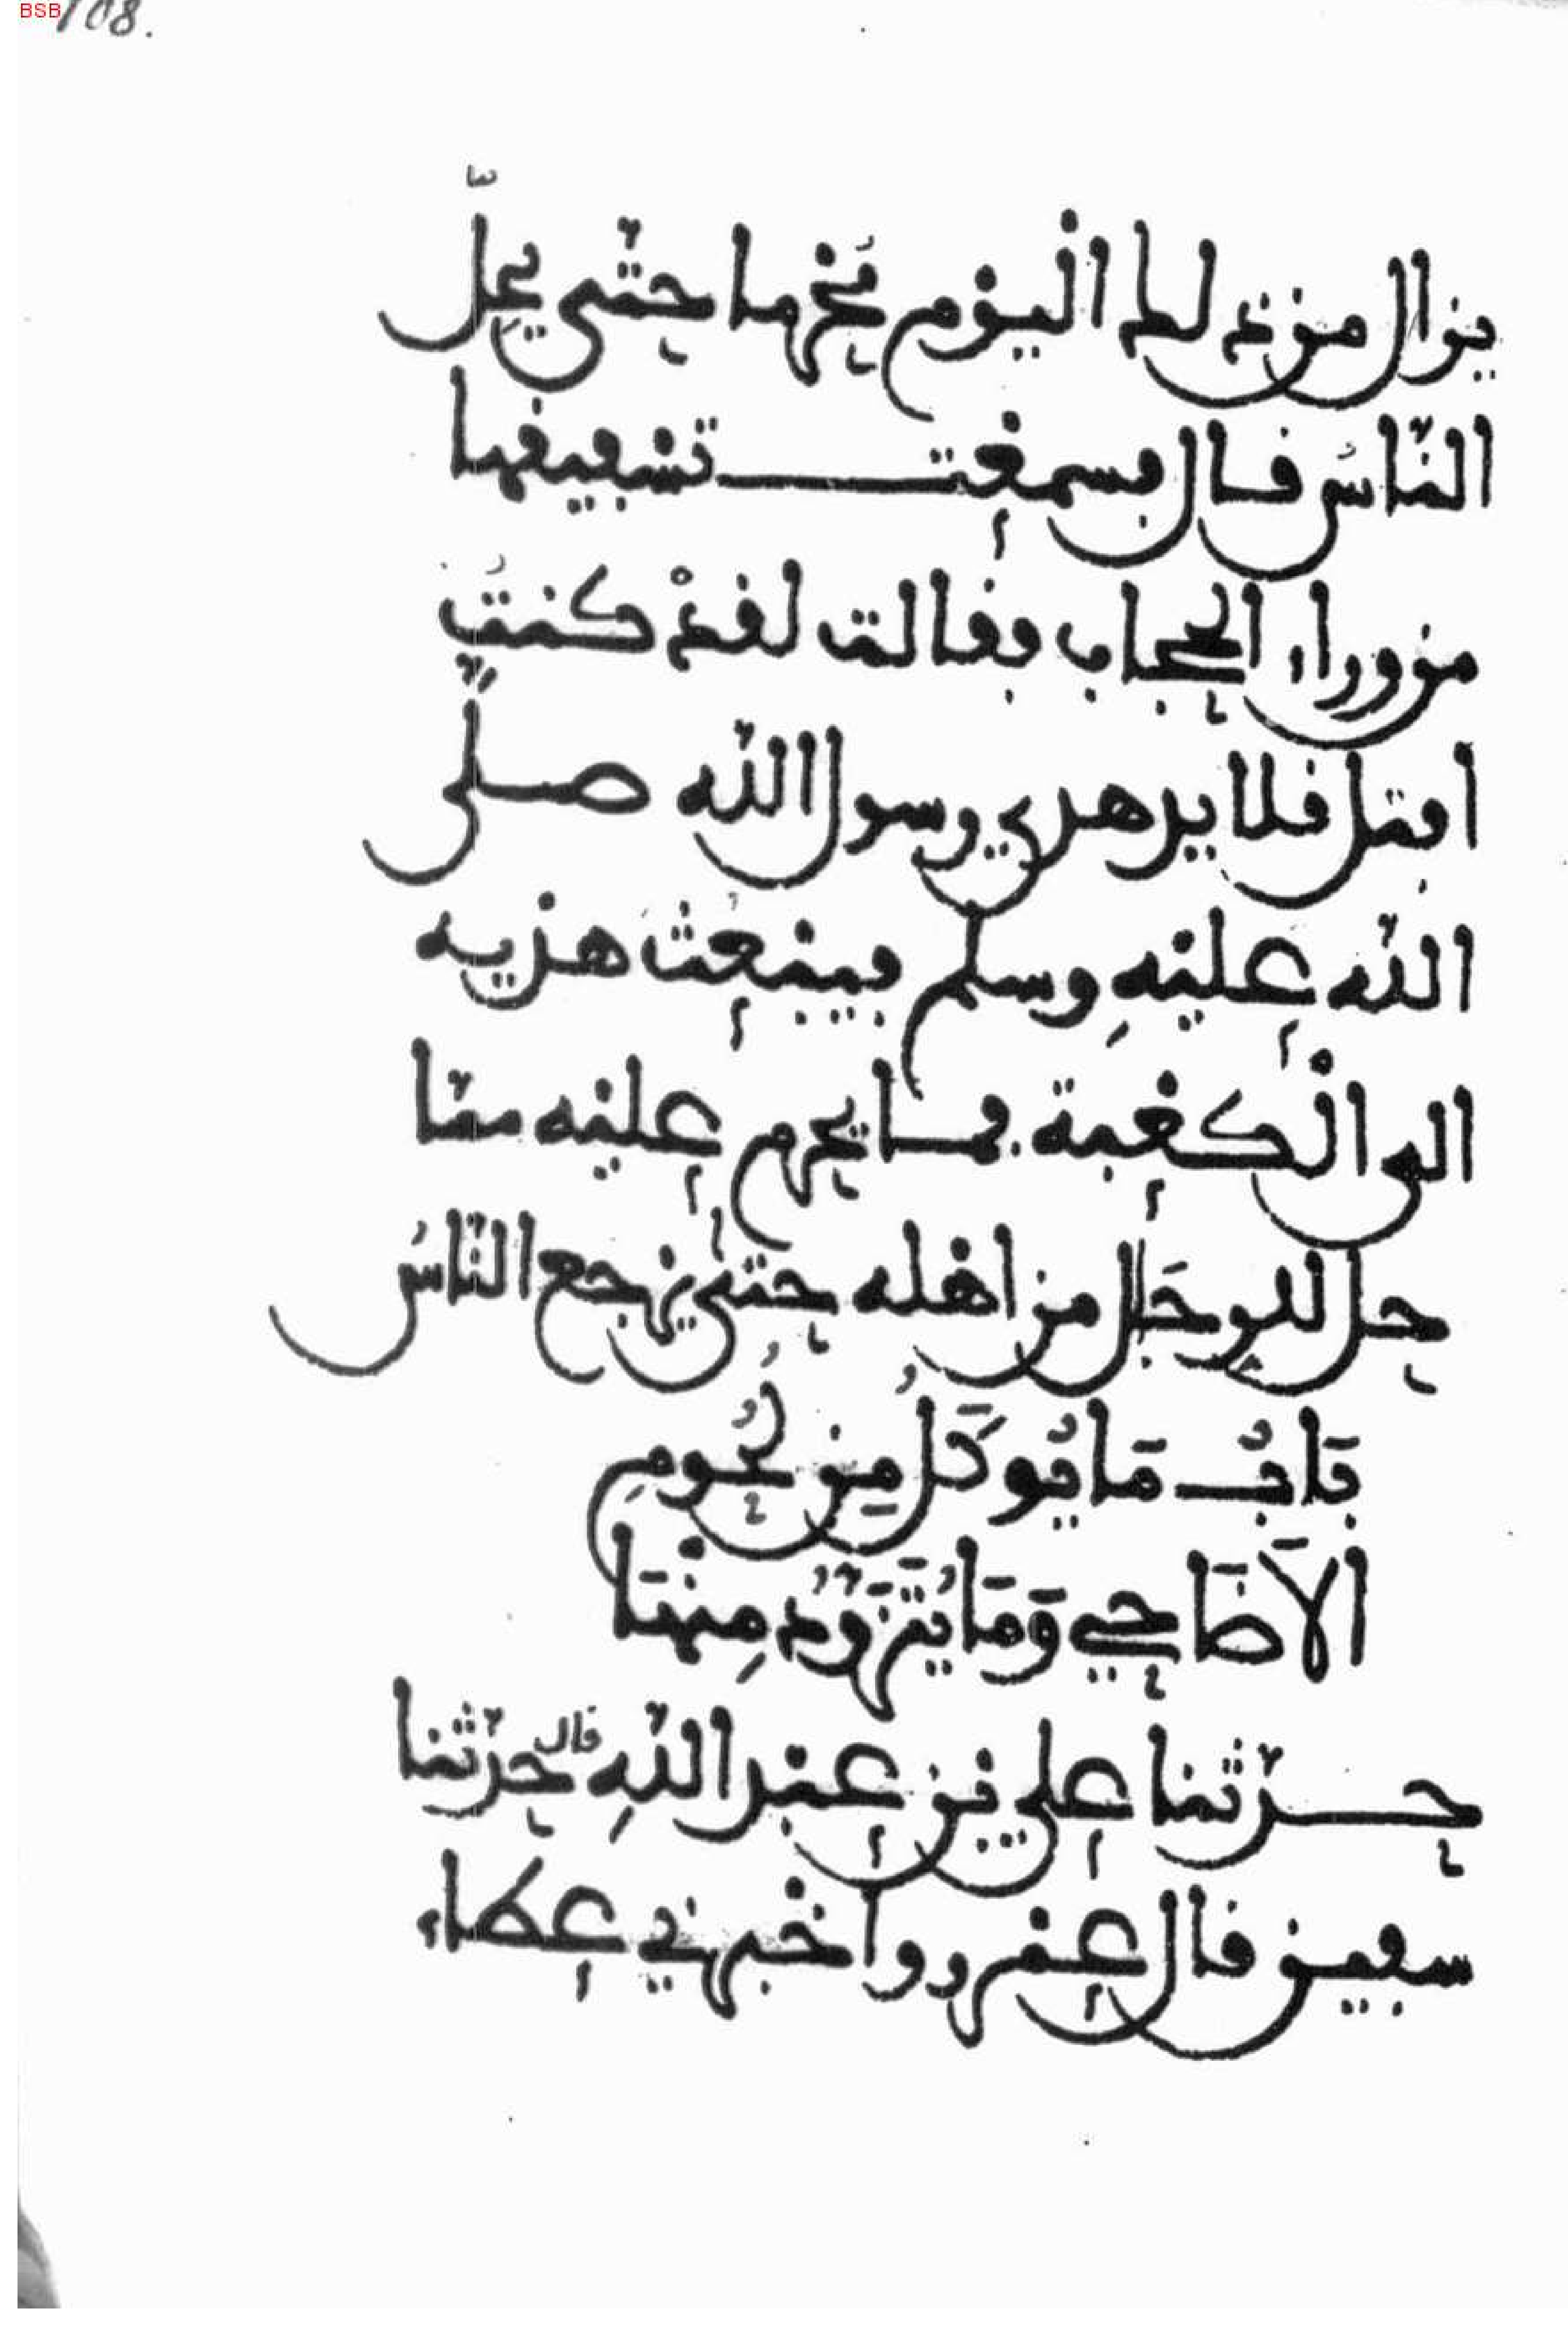 BSB
108.
يزال من ذلك اليوم محرما حتى يحل
الناس قال فسمعت تصفيقها
من وراء الحجاب فقالت لقد كنت
افتل قلايد هدي رسول الله صلى
الله عليه وسلم فيبعث هديه
الى الكعبة فما يحرم عليه مما
حل للرجال من اهله حتى يرجع الناس
بَابُ مَا يُوكَلُ مِن لُحُومِ
الاَضَاحِي وَمَا يُتَزَوَّدُ مِنْهَا
حدثنا علي بن عبد الله قال حدثنا
سفين قال عمرو اخبرني عطاء